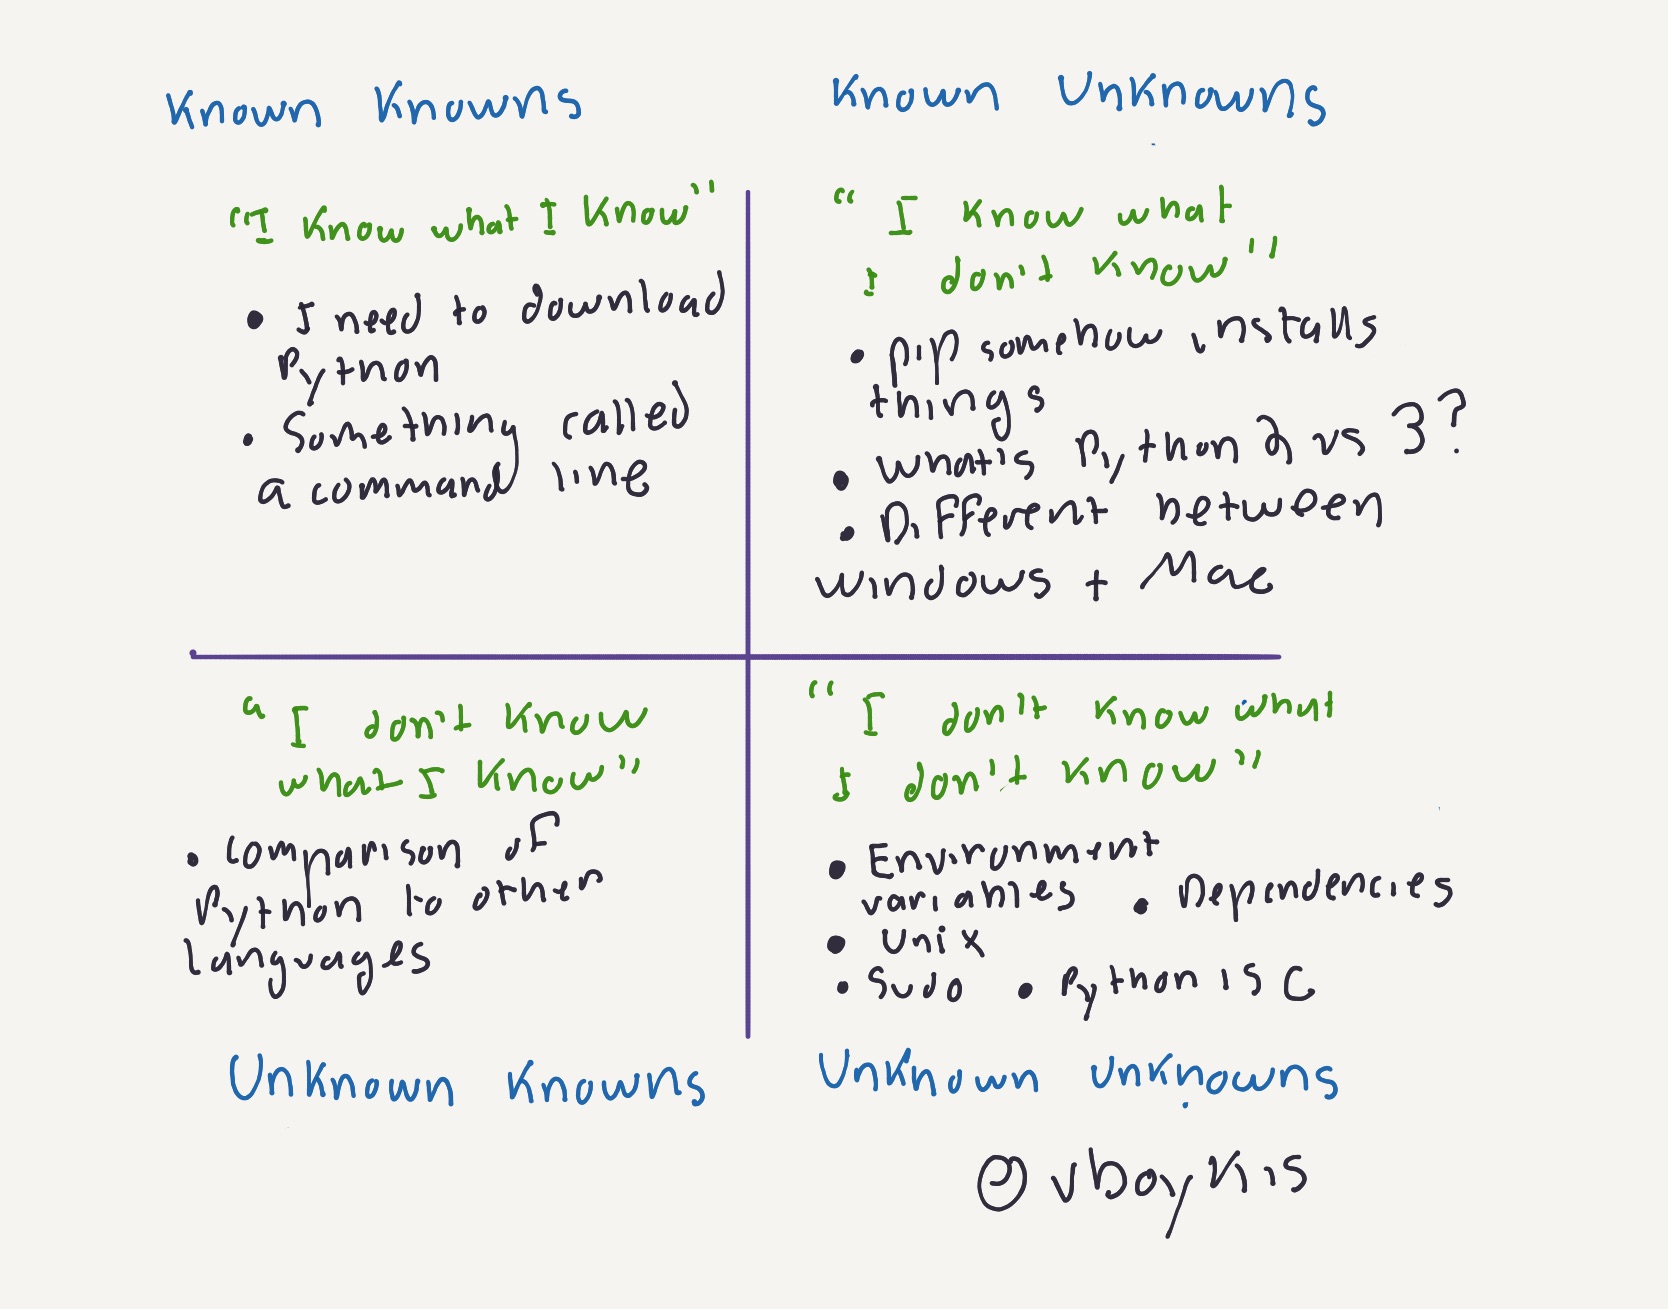 Known Knowns
"I know what I know"
• I need to download
Python
• Something called
a command line
Known Unknowns
"I know what
I don't know"
• pip somehow installs
things
• what's Python 2 vs 3?
• Different between
windows + Mac
"I don't know
what I know"
• Comparison of
Python to other
languages
Unknown Knowns
"I don't know what
I don't know"
• Environment
variables • Dependencies
• Unix
• Sudo • Python is C
Unknown unknowns
@vboykis